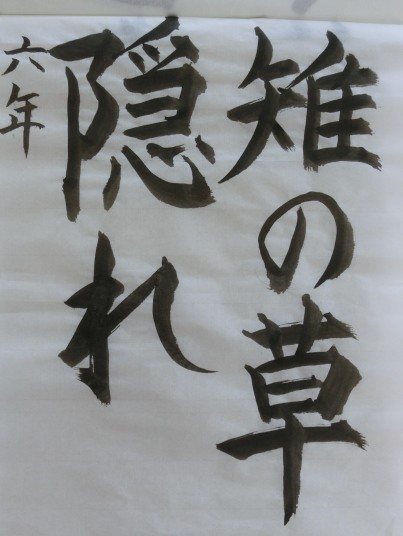 雉の草
隠れ
六年